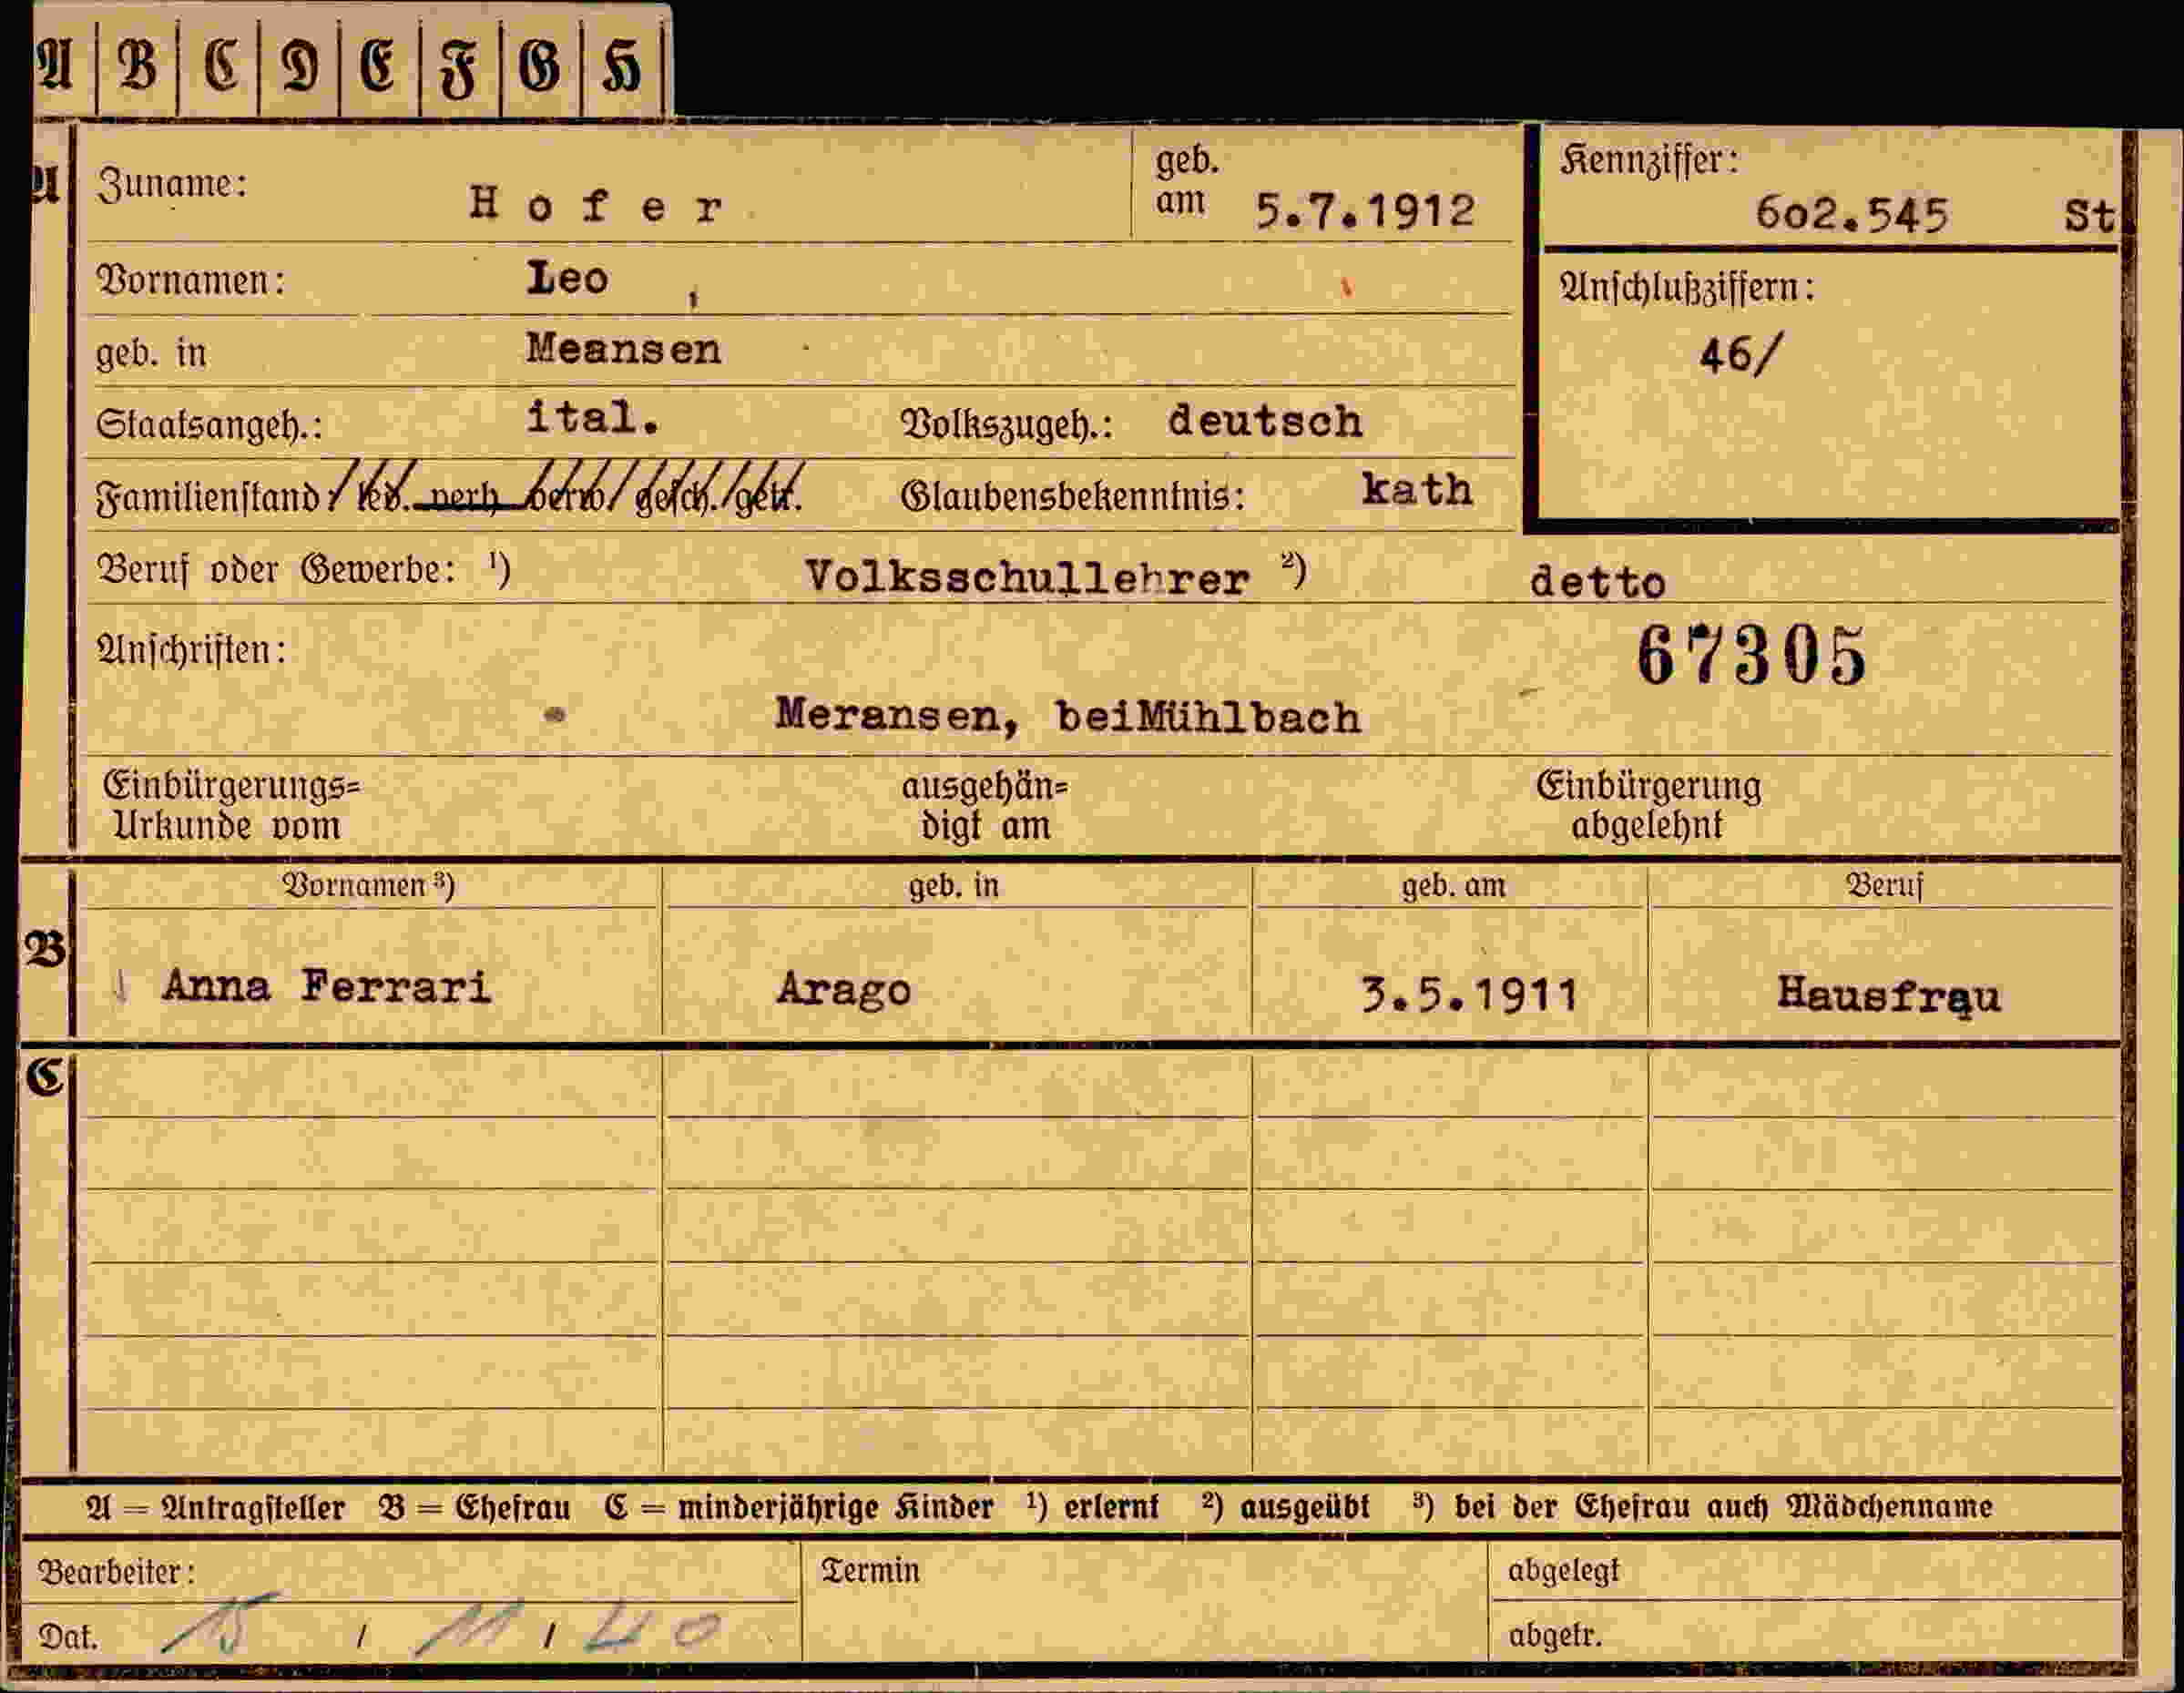 A B C D E F G H
A Zuname: Hofer geb. am 5.7.1912 Kennziffer: 6o2.545 St
Vornamen: Leo , Anschlußziffern:
geb. in Meansen 46/
Staatsangeh.: ital. Volkszugeh.: deutsch
Familienstand: led. verh. verw. gesch. getr. Glaubensbekenntnis: kath
Beruf oder Gewerbe: ¹) Volksschullehrer ²) detto
Anschriften: 67305
Meransen, beiMühlbach
Einbürgerungs= ausgehän= Einbürgerung
Urkunde vom digt am abgelehnt
Vornamen ³) geb. in geb. am Beruf
B Anna Ferrari Arago 3.5.1911 Hausfrau
C
A = Antragsteller B = Ehefrau C = minderjährige Kinder ¹) erlernt ²) ausgeübt ³) bei der Ehefrau auch Mädchenname
Bearbeiter: Termin abgelegt
Dat. 15 / 11 / 40 abgetr.